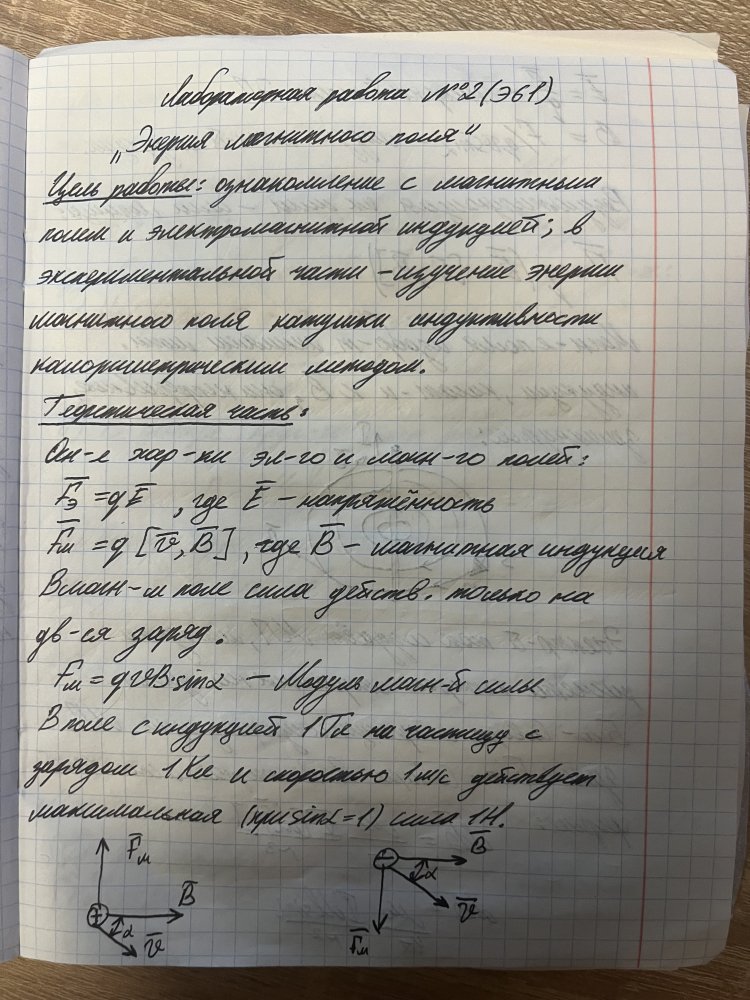 Лабораторная работа №2 (Э61)
„Энергия магнитного поля"
Цель работы: ознакомление с магнитным
полем и электромагнитной индукцией; в
экспериментальной части – изучение энергии
магнитного поля катушки индуктивности
калориметрическим методом.
Теоретическая часть:
Он-е хар-ки эл-го и магн-го полей:
F̅э = qE̅, где E̅ – напряжённость
F̅м = q[v̅, B̅], где B̅ – магнитная индукция
В магн-м поле сила действ. только на
дв-ся заряд.
Fм = qvB·sinα – Модуль магн-й силы
В поле с индукцией 1Тл на частицу с
зарядом 1Кл и скоростью 1м/с действует
максимальная (при sinα=1) сила 1Н.
F̅м
B̅
+
α
v̅
B̅
–
α
v̅
F̅м